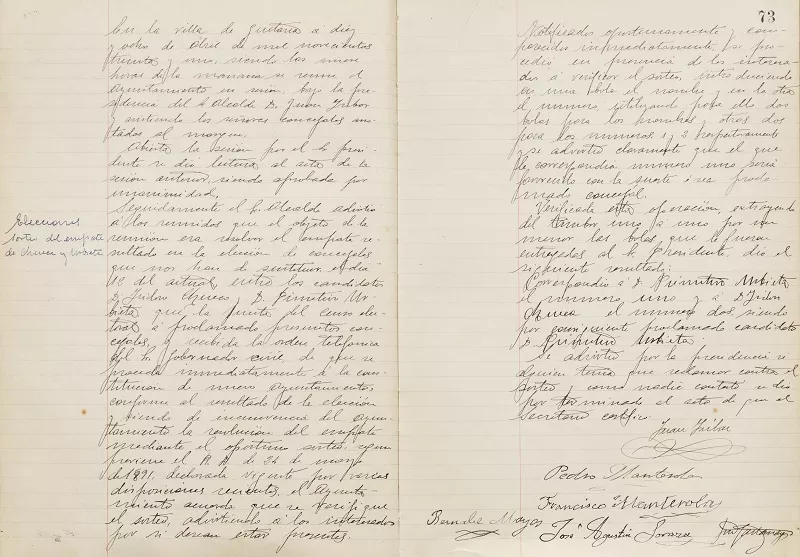 En la villa de Guetaria a diez
y ocho de Abril de mil novecientos
treinta y uno, siendo las nueve
horas de la mañana se reune el
Ayuntamiento en sesión, bajo la pre-
sidencia del Sr Alcalde D. Juan Iribar
y asistiendo los señores concejales ano-
tados al margen.
Abierta la sesión por el Sr presi-
dente se dió lectura al acta de la
sesión anterior, siendo aprobada por
unanimidad.
Seguidamente el Sr. Alcalde advirtió
a los reunidos que el objeto de la
reunión era resolver el empate re-
sultado en la elección de concejales
que nos han de sustituir el día
del actual, entre los candidatos
D. Isidro Chueca y D. Primitivo Ur-
bieta que la junta del censo elec-
toral a proclamado presuntos con-
cejales, y recibida la orden telefónica
del Sr Gobernador civil de que se
proceda inmediatamente a la cons-
titución de nuevo Ayuntamiento,
conforme al resultado de la elección
y siendo de incumvencia del Ayun-
tamiento la resolución del empate
mediante el oportuno sorteo, segun
previene el R. D. de 24 de marzo
de 1891, declarado vigente por varias
disposiciones recientes, el Ayunta-
miento acuerda que se verifique
el sorteo, advirtiendo a los interesados
por si desean estar presentes.
Elecciones
sorteo del empate
de Chueca y Urbieta
73
Notificados oportunamente y com-
parecidos inmediatamente, se pro-
cedió en presencia de los interesa-
dos a verificar el sorteo, introduciendo
en una bola el nombre y en la otra
el numero, utilizando para ello dos
bolas para los nombres y otras dos
para los numeros 1 y 2 respectivamente
y se advirtió claramente que el que
le correspondía numero uno sería
favorecido con la suerte i sea procla-
mado concejal.
Verificada esta operación, extrayendo
del tambor uno a uno por un
menor las bolas que le fueron
entregadas al Sr. Presidente, dió el
siguiente resultado:
Correspondió a D. Primitivo Urbieta
el numero uno y a D. Isidro
Chueca el numero dos, siendo
por consiguiente proclamado candidato
D. Primitivo Urbieta.
Se advirtió por la presidencia si
alguien tenía que reclamar contra el
sorteo y como nadie contestó se dió
por terminado el acto de que el
Secretario certifico.
Juan Iribar
Pedro Manterola
Francisco Manterola
José Agustin